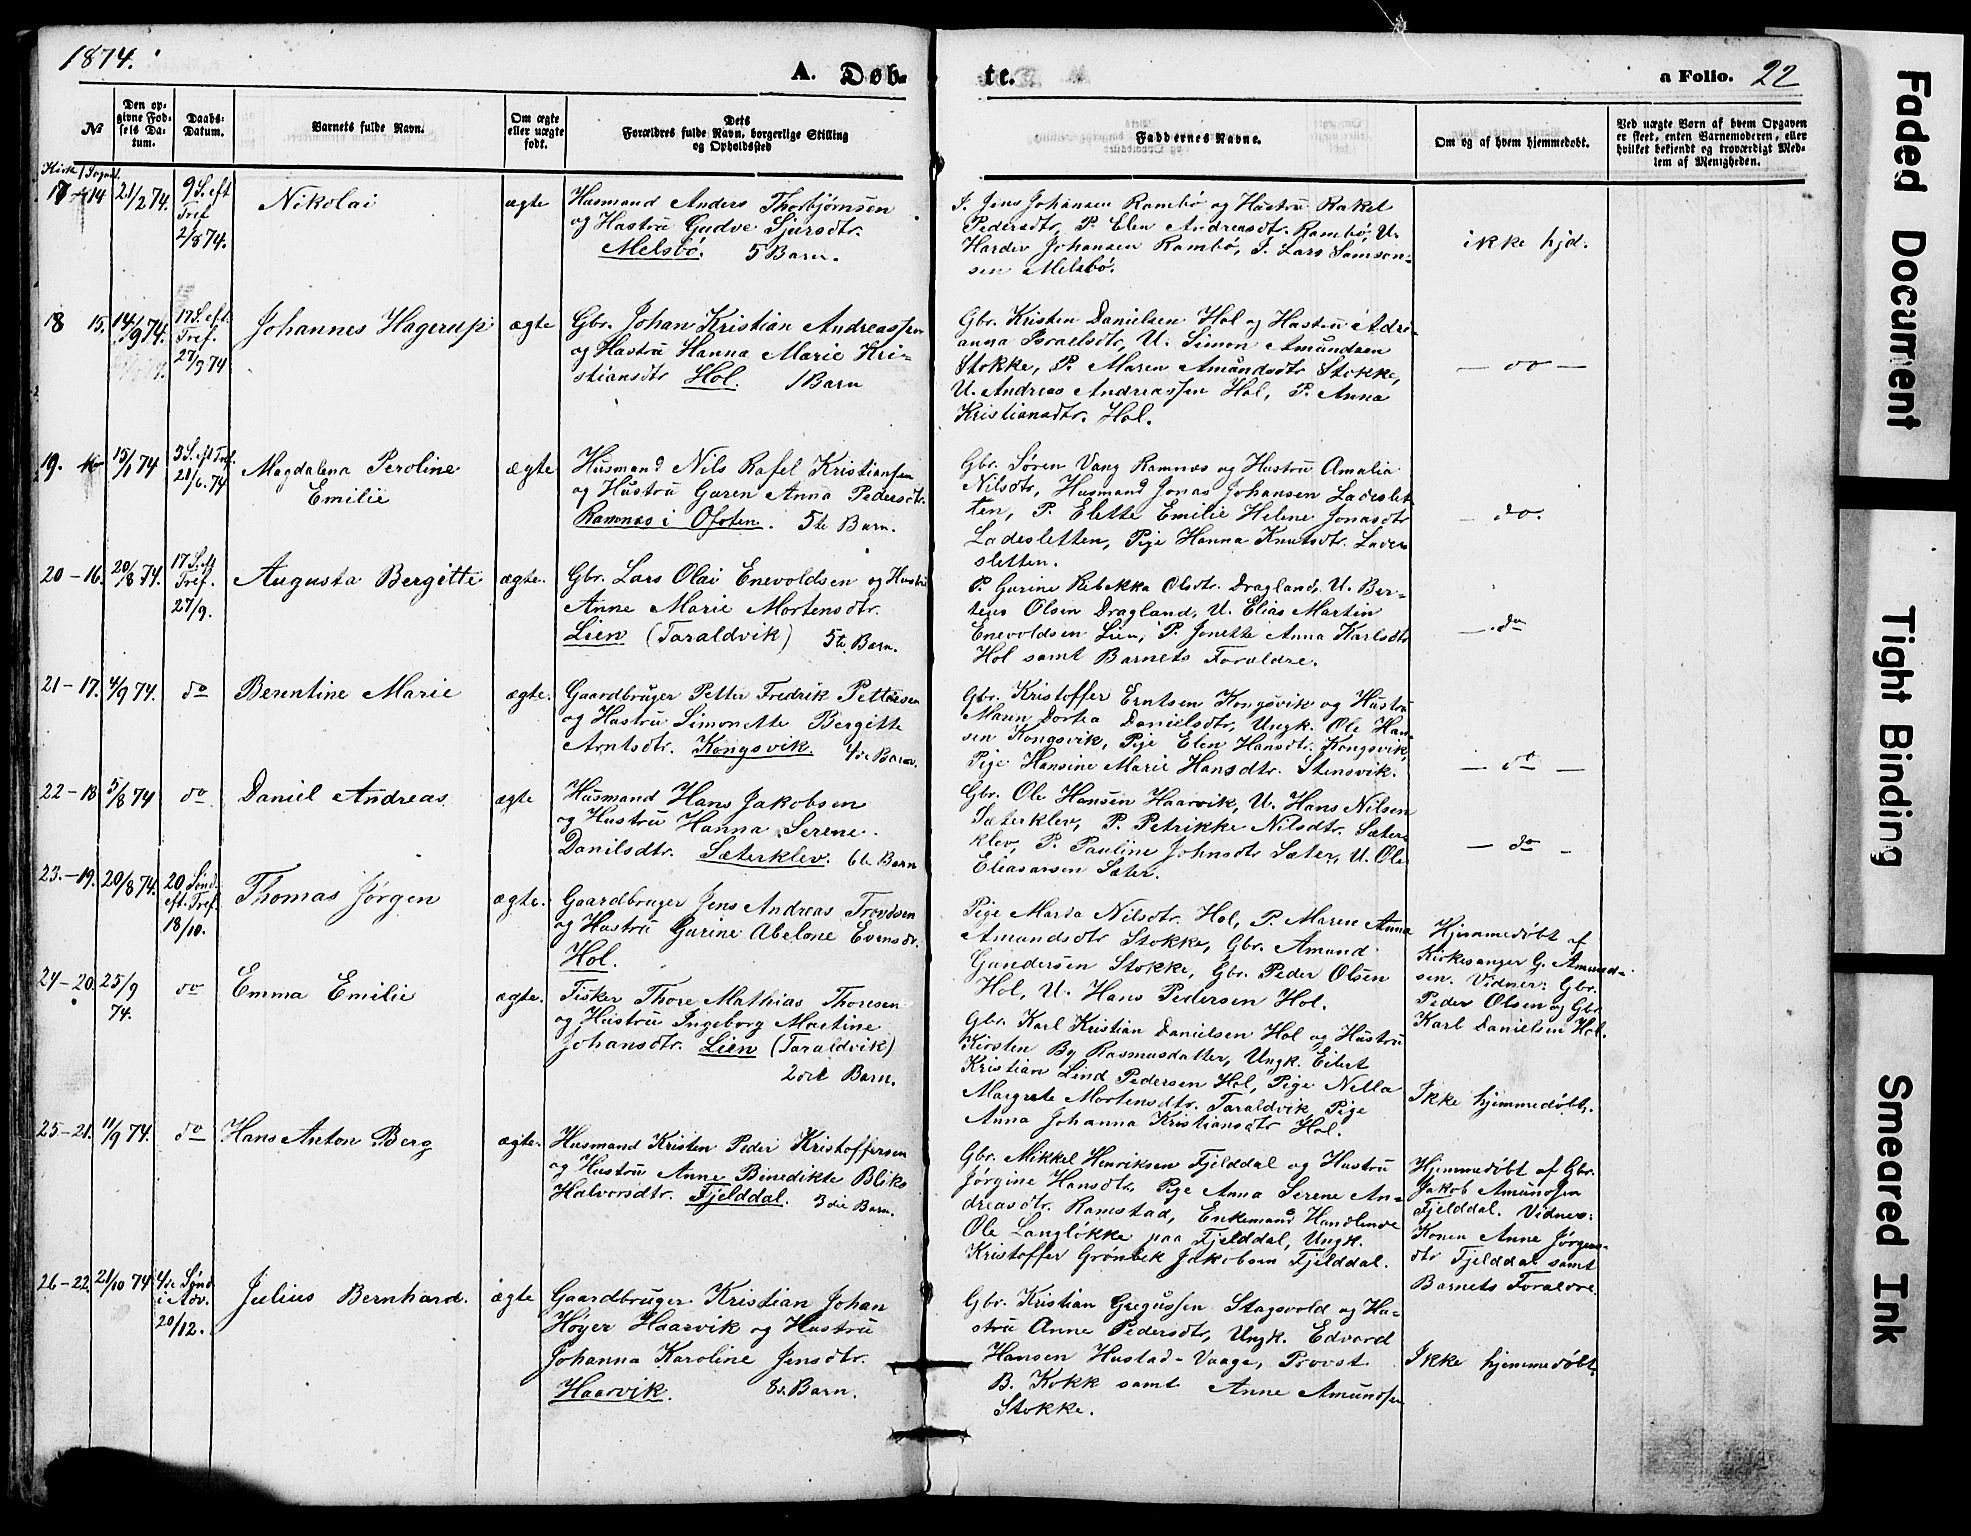 1874.
A. Døb-
te.
a Folio. 22
№
Den op-
givne Fød-
sels Da-
tum.
Daabs-
Datum.
Barnets fulde Navn.
Om ægte
eller uægte
født.
Dets
Forældres fulde Navn, borgerlige Stilling
og Opholdssted
Faddernes Navne.
Om og af hvem hjemmedøbt.
Ved uægte Børn af hvem Opgaven
er skeet, enten Barnemoderen, eller
hvilket bekjendt og troværdigt Med-
lem af Menigheden.
Kirke / Sogn
17 - 14
21/2 74.
9 S. eft
Tref
2/8 74.
Nikolai
ægte
Husmand Anders Thorbjørnsen
og Hustru Gudve Sjursdtr.
Melsbö. 5 Barn.
J. Jens Johansen Rambö og Hustru Rakel
Pedersdtr, P. Elen Andreasdt. Rambö, U.
Harder Johansen Rambö, J. Lars Samson-
sen Melsbö.
ikke hjd.
18 15.
14/9 74.
17 S. eft.
Tref.
27/9 74
Johannes Hagerup
ægte
Gbr. Johan Kristian Andreassen
og Hustru Hanna Marie Kri-
stiansdtr Hol. 1 Barn
Gbr. Kristen Danielsen Hol og Hustru Adri-
anna Israelsdtr, U. Simon Amundsen
Stokke, P. Maren Amundsdtr Stokke,
U. Andreas Andreassen Hol, P. Anna
Kristiansdtr. Hol.
— do —
19.
15/1 74
3 S. eft Tref.
21/6. 74
Magdalena Peroline
Emilie
ægte
Husmand Nils Rafel Kristiansen
og Hustru Garen Anna Pedersdtr.
Ramnæs i Ofoten. 5te Barn.
Gbr. Søren Vang Ramnæs og Hustru Amalia
Nilsdtr, Husmand Jonas Johansen Ladeslet-
ten, P. Elette Emilie Helene Jonasdtr
Ladesletten, Pige Hanna Knutsdtr. Lade-
sletten.
— do.
20 - 16.
20/8 74.
17 S. eft
Tref.
27/9.
Augusta Bergitte
ægte.
Gbr. Lars Olai Enevoldsen og Hustru
Anne Marie Mortensdtr.
Lien (Taraldvik) 5te Barn.
P. Gurine Rebekka Olsdtr. Dragland, U. Ber-
teus Olsen Dragland, U. Elias Martin
Enevoldsen Lien, P. Jonette Anna Karlsdtr
Hol samt Barnets Forældre.
— do
21 - 17.
4/9 74.
do
Berentine Marie
ægte.
Gaardbruger Petter Fredrik Pettersen
og Hustru Simonette Bergitte
Arntsdtr. Kongsvik. 4de Barn.
Gbr. Kristoffer Erntsen Kongsvik og Hustru
Mann Dortea Danielsdtr, Ungk. Ole Han-
sen Kongsvik, Pige Elen Hansdtr. Kongsvik,
Pige Hansine Marie Hansdtr. Stensvik.
— do —
22 - 18
5/8 74
do
Daniel Andreas
ægte
Husmand Hans Jakobsen
og Hustru Hanna Serene
Danilsdtr. Sæterklev. 6te Barn
Gbr. Ole Hansen Haarvik, U. Hans Nilsen
Sæterklev, P. Petrikke Nilsdtr. Sæter-
klev, P. Pauline Johnsdtr Sæter, U. Ole
Eleasarsen Sæter.
— do —
23. - 19.
20/8 74.
20 Sønd.
eft. Tref.
18/10.
Thomas Jørgen
ægte.
Gaardbruger Jens Andreas Trondsen
og Hustru Gurine Abelone Evensdtr.
Hol.
Pige Marda Nilsdtr. Hol, P. Maren Anna
Amundsdtr Stokke, Gbr. Amund
Gundersen Stokke, Gbr. Peder Olsen
Hol, U. Hans Pedersen Hol.
Hjemmedøbt af
Kirkesanger G. Amund-
sen. Vidner: Gbr.
Peder Olsen og Gbr
Karl Danielsen Hol.
24 - 20.
25/9
74.
do
Emma Emilie
ægte.
Fisker Thore Mathias Thoresen
og Hustru Ingeborg Martine
Johansdtr. Lien (Taraldvik)
2det Barn.
Gbr. Karl Kristian Danielsen Hol og Hustru
Kirsten By Rasmusdatter, Ungk. Eilert
Kristian Lind Pedersen Hol, Pige Nella
Margrete Mortensdtr. Taraldvik, Pige
Anna Johanna Kristiansdtr Hol.
Ikke hjemmedøbt.
25 - 21.
11/9 74.
do
Hans Anton Berg
ægte.
Husmand Kristen Peder Kristoffersen
og Hustru Anne Benedikte Bliks
Halvorsdtr. Fjelddal. 3die Barn.
Gbr. Mikkel Henriksen Fjelddal og Hustru
Jørgine Hansdtr, Pige Anna Serene An-
dreasdtr. Ramstad, Enkemand Handlende
Ole Langløkke paa Fjelddal, Ungk.
Kristoffer Grönbek Jakobsen Fjelddal.
Hjemmedøbt af Gbr.
Jakob Amundsen
Fjelddal. Vidner:
Konen Anne Jørgens-
dtr Fjelddal samt
Barnets Forældre.
26 - 22.
21/10 74
4de Sønd.
i Adv.
20/12.
Julius Bernhard.
ægte
Gaardbruger Kristian Johan
Høyer Haarvik og Hustru
Johanna Karoline Jensdtr.
Haarvik. 8de Barn.
Gbr. Kristian Gregussen Stagsvold og Hu-
stru Anne Pedersdtr, Ungk. Edvard
Hansen Hustad-Vaage, Provst
B. Kokk samt Anne Amundsen
Stokke.
Ikke hjemmedøbt.
Faded Document
Tight Binding
Smeared Ink